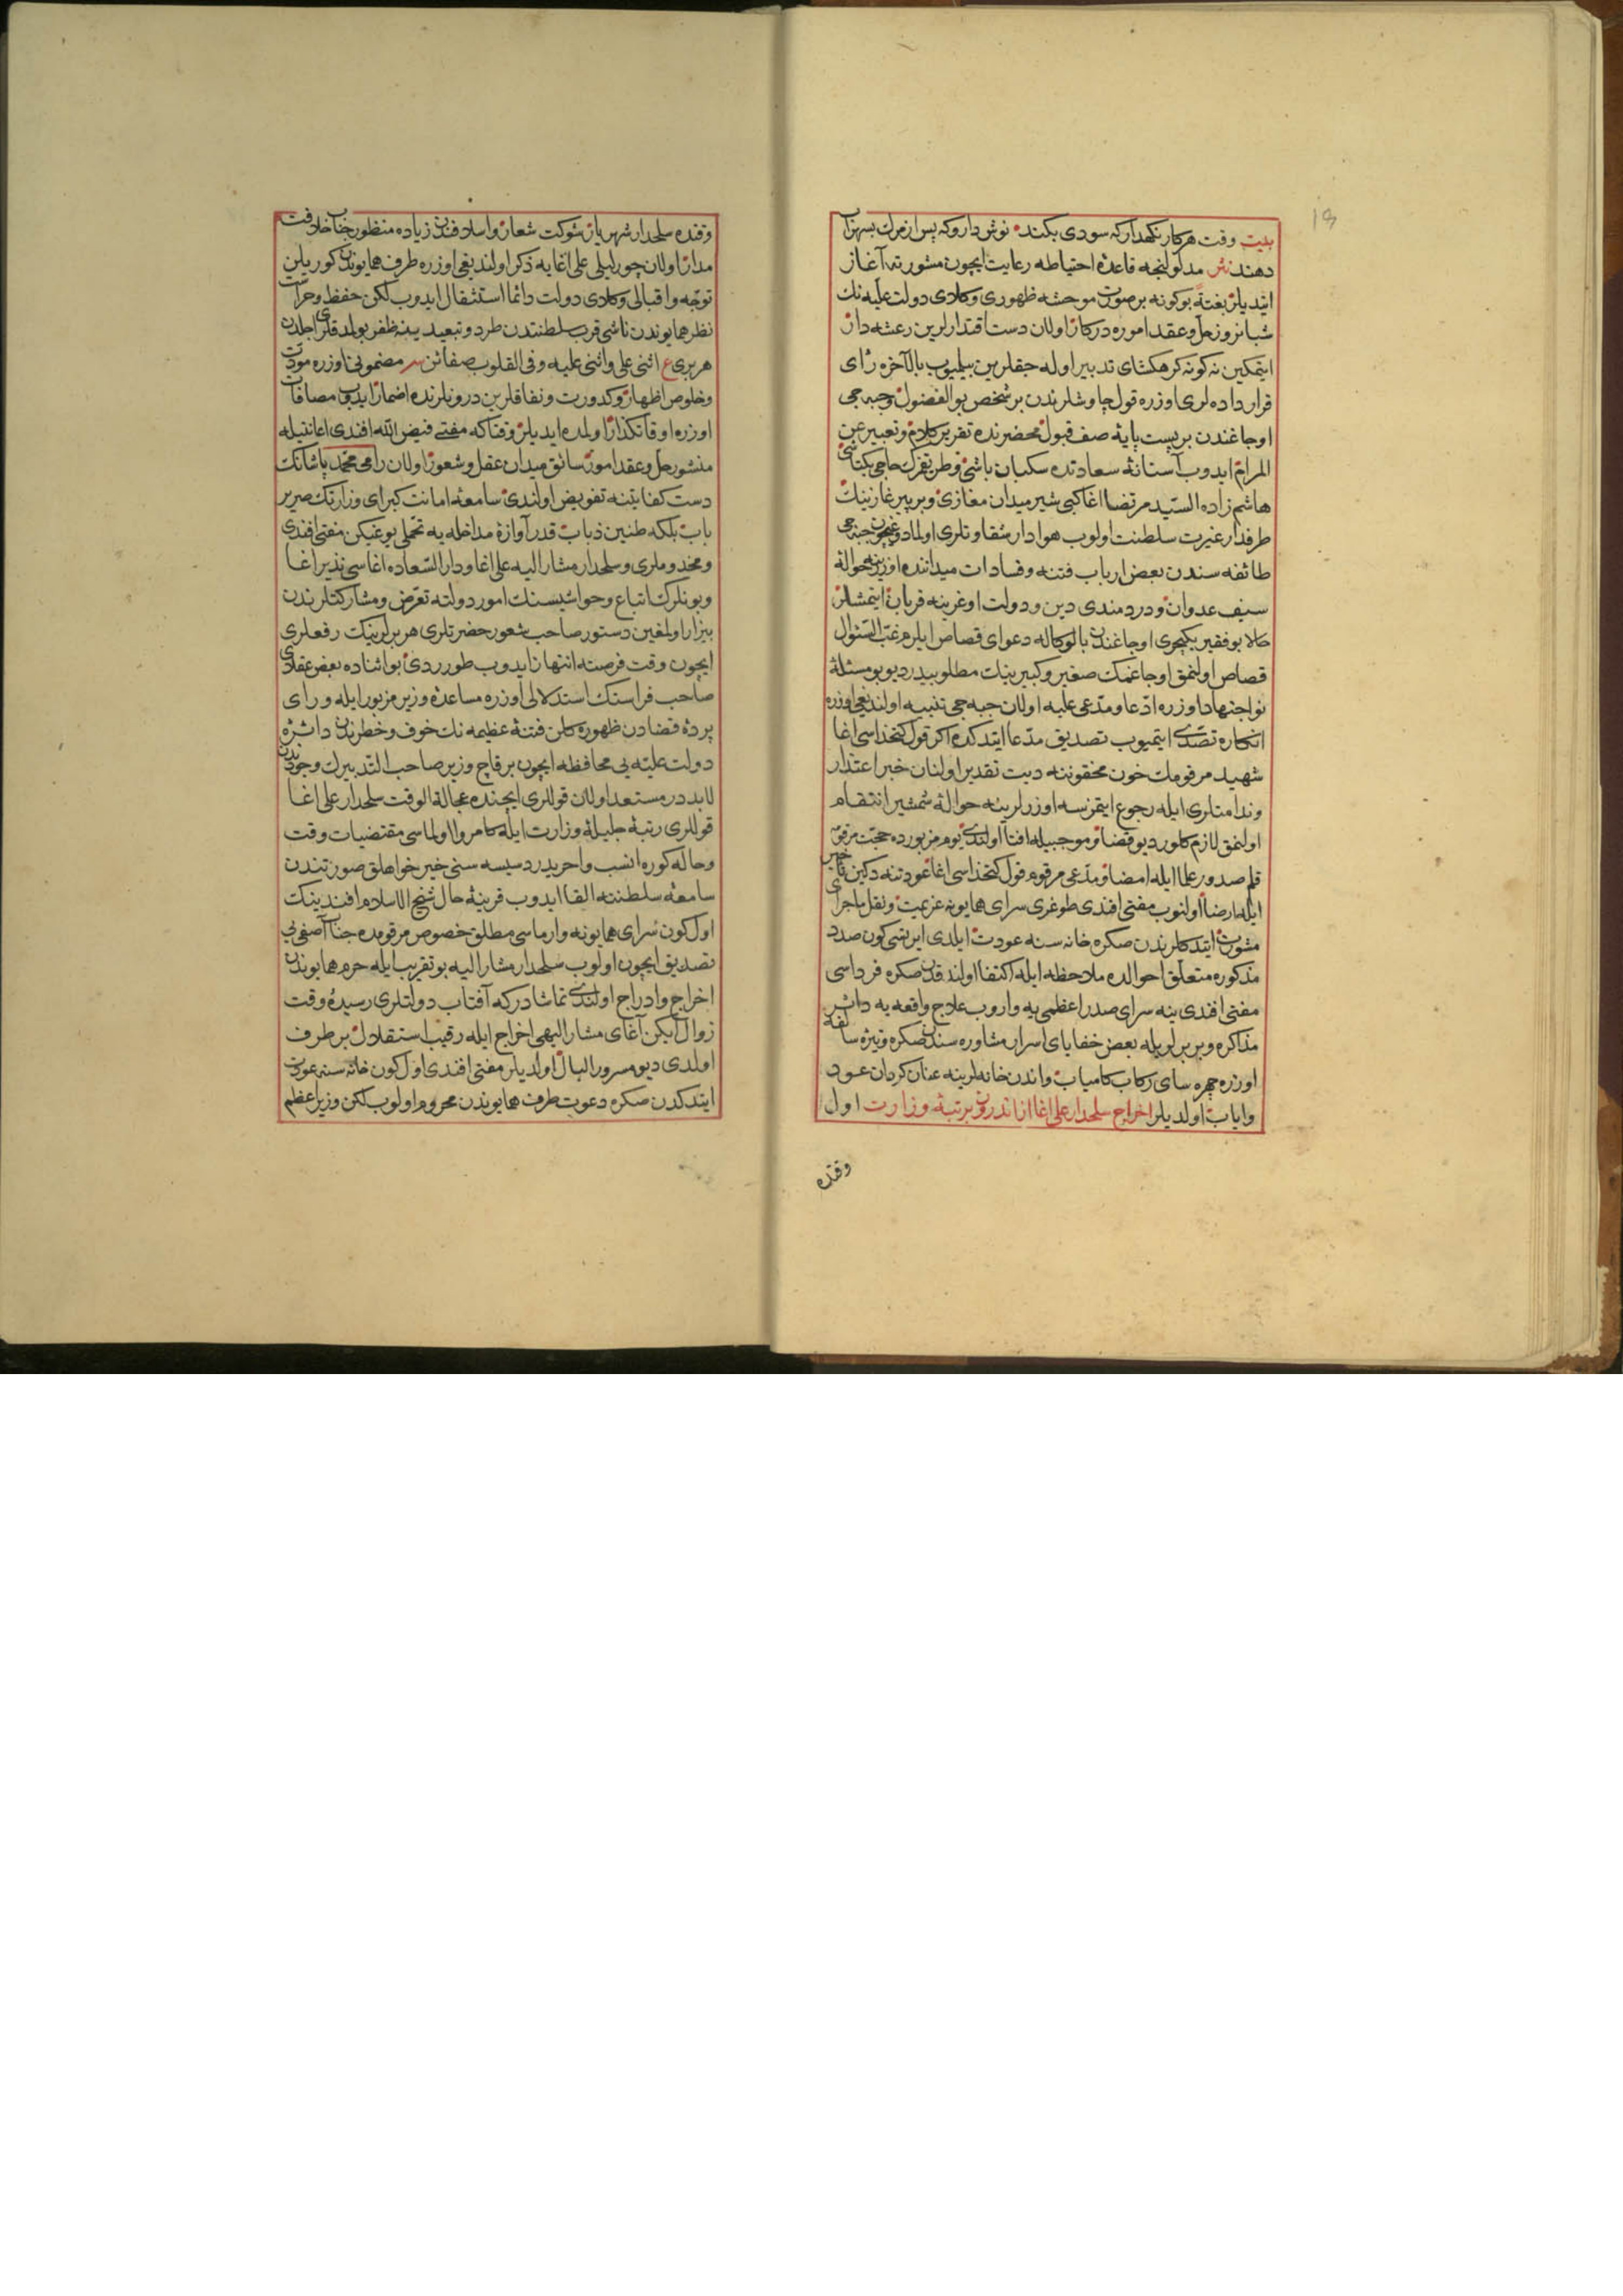 ۱۹
بیت وقت هر کار نکهدار که سودی نکند نوش دارو که پس از مرك بسهراب
دهند نثر مدلولنجه قاعدۀ احتیاطه رعایت ایچون مشورته آغاز
ایتدیلر بغتةً بو کونه بر صورت موحشه ظهوری وکلای دولت علیه نك
شبانروز حل وعقد اموره درکار اولان دست اقتدارلرین رعشه دار
ایتمکین نه کونه کرهکشای تدبیر اوله جقلرین بیلمیوب بالآخره رأی
قرار داده لری اوزره قول چاوشلرندن بر شخص بو الفضول وجبه جی
اوجاغندن بر پست پایۀ صف قبول محضرنده تقریر کلام وتعبیر عن
المرام ایدوب آستانۀ سعادتده سکبان باشی وطریقزك حاجی بکتاشی
هاشم زاده السید مرتضا اغا کبی شیر میدان مغازی وبر پیر غازینك
طرفدار غیرت سلطنت اولوب هوادار شقاوتلری اولمادوغیچون جبه جی
طائفه سندن بعض ارباب فتنه وفسادات میدانده اوزرینه حوالۀ
سیف عدوان ودردمندی دین ودولت اوغرینه قربان ایتمشلر
حالا بو فقیر یکیچری اوجاغندن بالوکاله دعوای قصاص ایلرم غب السؤال
قصاص اولنمق اوجاغمك صغیر وکبیرینك مطلوبیدر دیو بو مسئلۀ
نو اجتهاد اوزره ادعا ومدعی علیه اولان جبه جی تنبیه اولندیغی اوزره
انکاره تصدی ایتمیوب تصدیق مدعا ایتدکده اکر قول کتخداسی اغا
شهید مرقومك خون محقوننه دیت تقدیر اولنان خبر اعتذار
وندامتلری ایله رجوع ایتمزسه اوزرلرینه حوالۀ شمشیر انتقام
اولنمق لازم کلور دیو قضا وموجبیله افتا اولندی یوم مزبورده حجت مرقوم
قلم صدور علما ایله امضا ومدعی مرقوم قول کتخداسی اغا عودتنه دکین
ایله ارضا اولنوب مفتی افندی طوغری سرای همایونه عزیمت ونقل ماجرای
مشورت ایتدکلرندن صکره خانه سنه عودت ایلدی ایرتسی کون صدد
مذکوره متعلق احوالده ملاحظه ایله اکتفا اولندقدن صکره فرداسی
مفتی افندی ینه سرای صدر اعظمی یه واروب علاج واقعه یه دائر
مذاکره وبربرلریله بعض خفایای اسرار مشاوره سندن صکره وتیرۀ سالفه
اوزره چهره سای رکاب کامیاب واندن خانه لرینه عنان کردان عود
وایاب اولدیلر اخراج سلحدار علی اغا از اندرون برتبۀ وزارت اول
وقتده
وقتده سلحدار شهریار شوکت شعار واسلافندن زیاده منظور جناب خلافت
مدار اولان چورلیلی علی اغایه ذکر اولندیغی اوزره طرف همایوندن کوریلن
توجه واقبالی وکلای دولت دائما استثقال ایدوب لکن حفظ وحراست
نظر همایوندن ناشی قرب سلطنتدن طرد وتبعیدینه ظفر بولمدقلری اجلدن
هر بری ع اثنی علی واثنی علیه وفی القلوب صفائن سر مضمونی اوزره مودت
وخلوص اظهار وکدورت ونفاقلرین درونلرنده اضمار ایدوب مصافات
اوزره اوقاتکذار اولمده ایدیلر وقتاکه مفتی فیض الله افندی اعانتیله
منشور حل وعقد امور سائق میدان عقل وشعور اولان رامی محمد پاشانك
دست کفایتنه تفویض اولندی سامعۀ امانت کبرای وزارتك صریر
باب بلکه طنین ذباب قدر آوازۀ مداخله یه تحملی یوغیکن مفتی افندی
ومخدوملری وسلحدار مشار الیه علی اغا ودار السعاده اغاسی نذیر اغا
وبونلرك اتباع وحواشیسنك امور دولته تعرض ومشارکتلرندن
بیزار اولمغین دستور صاحب شعور حضرتلری هر برلرینك رفعلری
ایچون وقت فرصته انتهاز ایدوب طورردی بو اثناده بعض عقلای
صاحب فراستك استدلالی اوزره مساعدۀ وزیر مزبور ایله ورای
پردۀ قضادن ظهوره کلن فتنۀ عظیمه نك خوف وخطرندن دائرۀ
دولت علیه یی محافظه ایچون بر قاچ وزیر صاحب التدبیرك وجودندن
لابددر مستعد اولان قوللری ایچنده عجالة الوقت سلحدار علی اغا
قوللری رتبۀ جلیلۀ وزارت ایله کامروا اولماسی مقتضیات وقت
وحاله کوره انسب واحریدر دسیسه سنی خیر خواهلق صورتندن
سامعۀ سلطنته القا ایدوب قرینۀ حال شیخ الاسلام افندینك
اول کون سرای همایونه وارماسی مطلق خصوص مرقومده جناب آصفی یی
تصدیق ایچون اولوب سلحدار مشار الیه بو تقریب ایله حرم همایوندن
اخراج وادراج اولندی تماشا درکه آفتاب دولتلری رسیدۀ وقت
زوال ایکن آغای مشار الیهی اخراج ایله رقیب استقلال بر طرف
اولدی دیو مسرور البال اولدیلر مفتی افندی اول کون خانه سنه عودت
ایتدکدن صکره دعوت طرف همایوندن محروم اولوب لکن وزیر اعظم